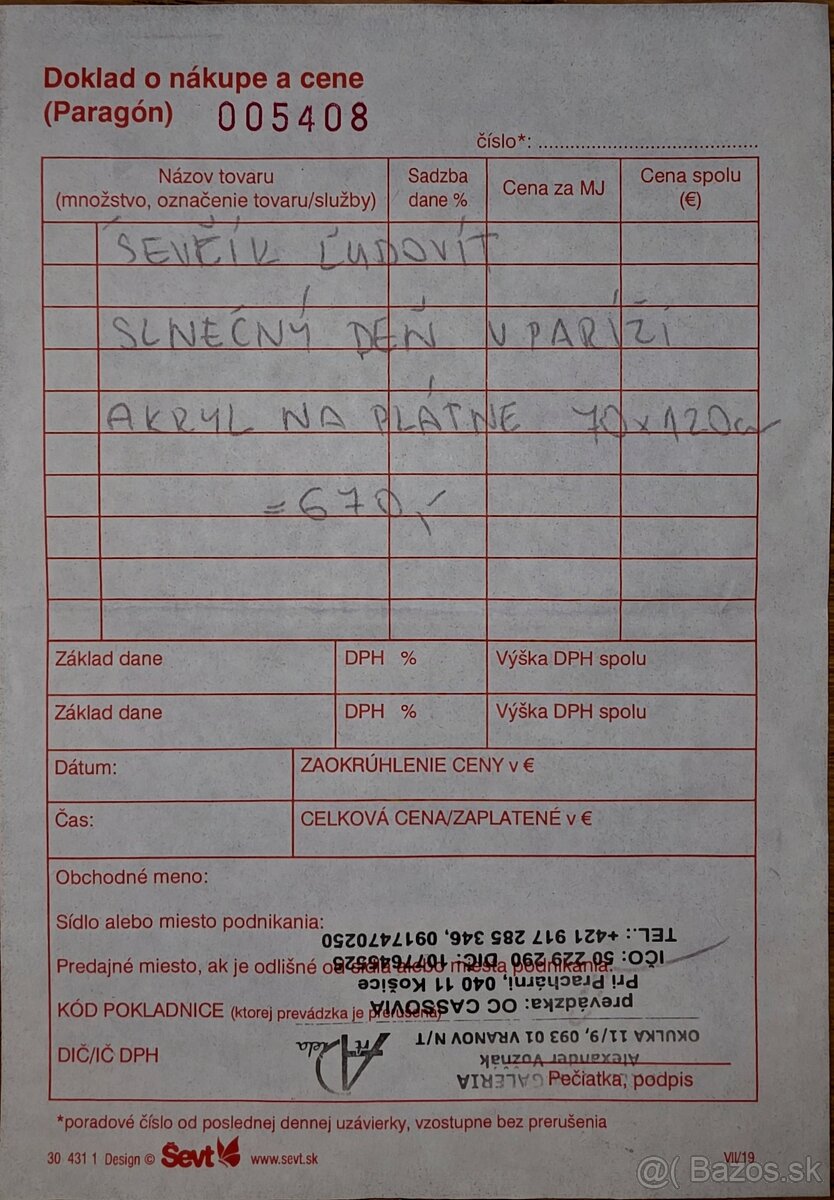 Doklad o nákupe a cene
(Paragón) 005408
číslo*:
Názov tovaru
(množstvo, označenie tovaru/služby)
Sadzba
dane %
Cena za MJ
Cena spolu
(€)
ŠEVČÍK ĽUDOVÍT
SLNEČNÝ DEŇ V PARÍŽI
AKRYL NA PLÁTNE 70x120cm
=670,-
Základ dane DPH % Výška DPH spolu
Základ dane DPH % Výška DPH spolu
Dátum: ZAOKRÚHLENIE CENY v €
Čas: CELKOVÁ CENA/ZAPLATENÉ v €
Obchodné meno:
Sídlo alebo miesto podnikania:
Predajné miesto, ak je odlišné od sídla alebo miesta podnikania:
KÓD POKLADNICE (ktorej prevádzka je prerušená)
DIČ/IČ DPH
Pečiatka, podpis
GALÉRIA
Alexander Vozňák
OKULKA 11/9, 093 01 VRANOV N/T
prevádzka: OC CASSOVIA
Pri Prachárni, 040 11 Košice
IČO: 50 229 290 DIČ: 1077646525
TEL.: +421 917 285 346, 0917470250
*poradové číslo od poslednej dennej uzávierky, vzostupne bez prerušenia
30 431 1 Design © Ševt www.sevt.sk VII/19
@( Bazos.sk